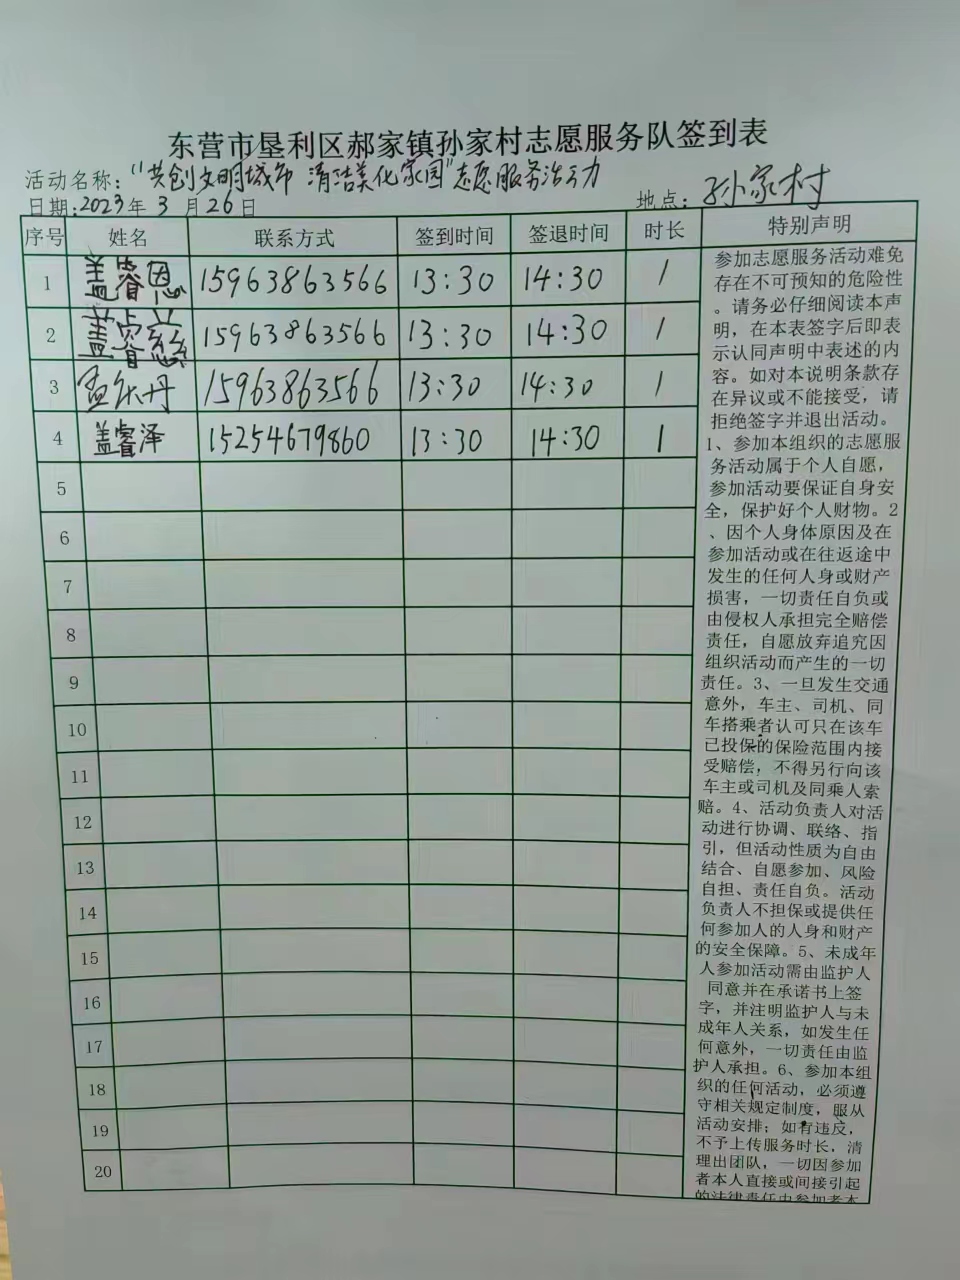 东营市垦利区郝家镇孙家村志愿服务队签到表
活动名称："共创文明城市 清洁美化家园"志愿服务活动
日期:2023年 3 月 26 日 地点: 孙家村
序号 姓名 联系方式 签到时间 签退时间 时长 特别声明
1 盖睿恩 15963863566 13:30 14:30 1
2 盖睿慈 15963863566 13:30 14:30 1
3 孟 丹 15963863566 13:30 14:30 1
4 盖睿泽 15254679860 13:30 14:30 1
5
6
7
8
9
10
11
12
13
14
15
16
17
18
19
20
参加志愿服务活动难免
存在不可预知的危险性
。请务必仔细阅读本声
明，在本表签字后即表
示认同声明中表述的内
容。如对本说明条款存
在异议或不能接受，请
拒绝签字并退出活动。
1、参加本组织的志愿服
务活动属于个人自愿，
参加活动要保证自身安
全，保护好个人财物。2
、因个人身体原因及在
参加活动或在往返途中
发生的任何人身或财产
损害，一切责任自负或
由侵权人承担完全赔偿
责任，自愿放弃追究因
组织活动而产生的一切
责任。3、一旦发生交通
意外，车主、司机、同
车搭乘者认可只在该车
已投保的保险范围内接
受赔偿，不得另行向该
车主或司机及同乘人索
赔。4、活动负责人对活
动进行协调、联络、指
引，但活动性质为自由
结合、自愿参加、风险
自担、责任自负。活动
负责人不担保或提供任
何参加人的人身和财产
的安全保障。5、未成年
人参加活动需由监护人
同意并在承诺书上签
字，并注明监护人与未
成年人关系，如发生任
何意外，一切责任由监
护人承担。6、参加本组
织的任何活动，必须遵
守相关规定制度，服从
活动安排；如有违反，
不予上传服务时长，清
理出团队，一切因参加
者本人直接或间接引起
的法律责任由参加者本